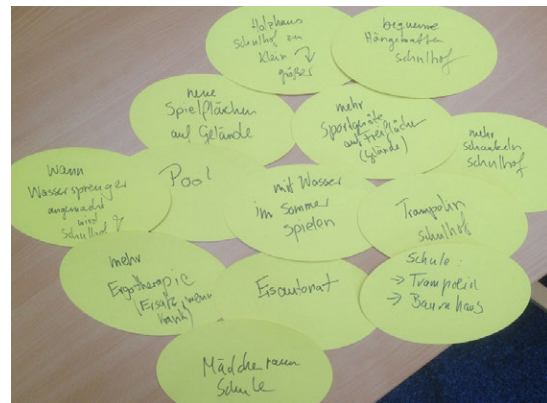 Holzhaus
Schulhof
klein
größer
bequeme
Hängematten
Schulhof
neue
Spielflächen
auf Gelände
mehr
Sportgeräte
auf Freifläche
(Gelände)
mehr
schaukeln
Schulhof
Wann
Wassersprenger
angemacht
wird
Schulhof ?
Pool
mit Wasser
im Sommer
spielen
Trampolin
Schulhof
mehr
Ergotherapie
(Ersatz wenn
krank)
Eisautomat
Schule:
→ Trampolin
→ Baumhaus
Mädchenraum
Schule